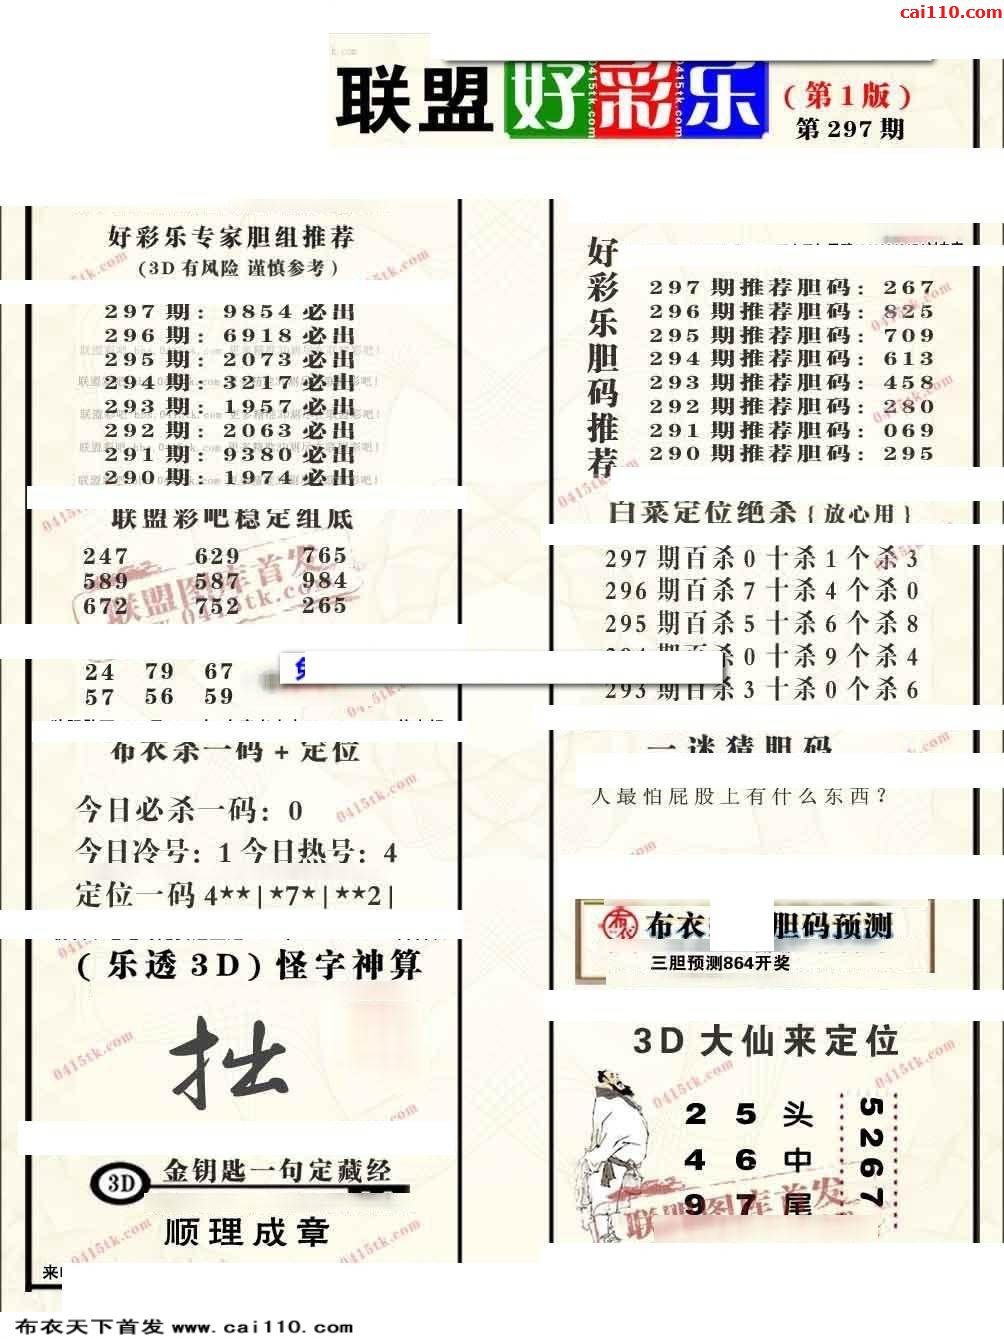 cai110.com
联盟好彩乐
(第1版)
第297期
好彩乐专家胆组推荐
(3D有风险 谨慎参考)
297期: 9854必出
296期: 6918必出
295期: 2073必出
294期: 3217必出
293期: 1957必出
292期: 2063必出
291期: 9380必出
290期: 1974必出
联盟彩吧稳定组底
247 629 765
589 587 984
672 752 265
联盟图库首发
0415tk.com
24 79 67
57 56 59
布衣杀一码+定位
今日必杀一码: 0
今日冷号: 1 今日热号: 4
定位一码 4**|*7*|**2|
(乐透3D)怪字神算
拙
3D 金钥匙一句定藏经
顺理成章
好彩乐胆码推荐
297期推荐胆码: 267
296期推荐胆码: 825
295期推荐胆码: 709
294期推荐胆码: 613
293期推荐胆码: 458
292期推荐胆码: 280
291期推荐胆码: 069
290期推荐胆码: 295
白菜定位绝杀{放心用}
297期百杀0十杀1个杀3
296期百杀7十杀4个杀0
295期百杀5十杀6个杀8
杀0十杀9个杀4
293期百杀3十杀0个杀6
一迷猜胆码
人最怕屁股上有什么东西?
布衣 胆码预测
三胆预测864开奖
3D大仙来定位
2 5 头
4 6 中
9 7 尾
5267
联盟图库首发
布衣天下首发 www.cai110.com